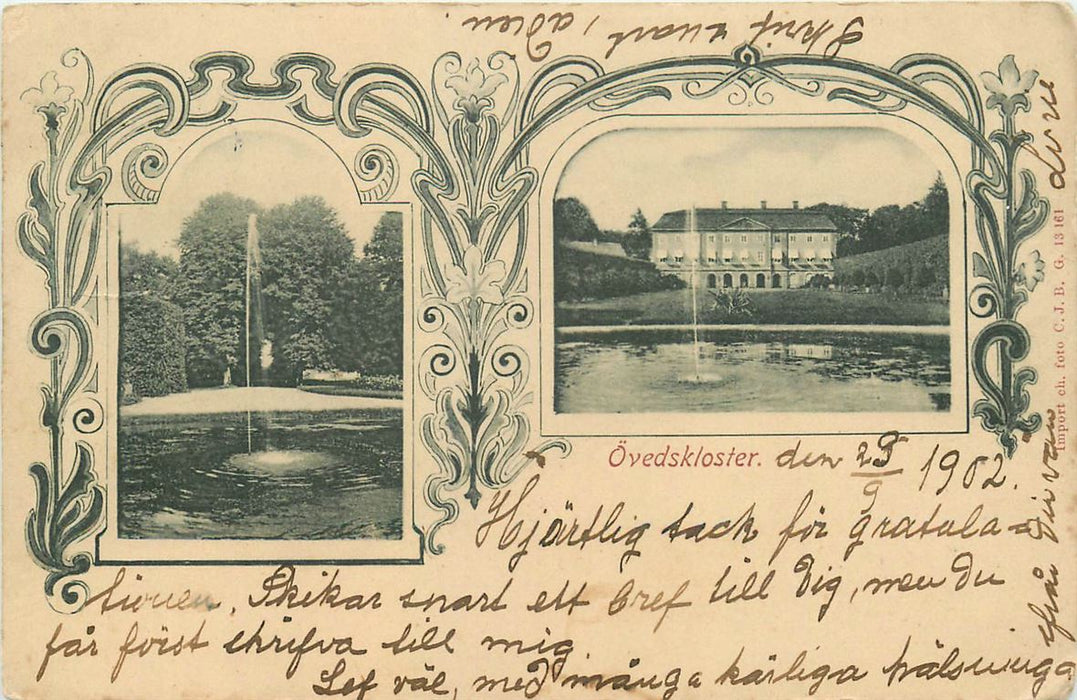 Övedskloster. den 29/9 1902.
Hjärtlig tack för gratula-
tionen. Skikar snart ett bref till Dig, men Du
får först skrifva till mig.
Lef väl, med många kärliga hälsninga
från Din vän
Skrif snart, adieu
Import ch. foto C. J. B. G. 13161